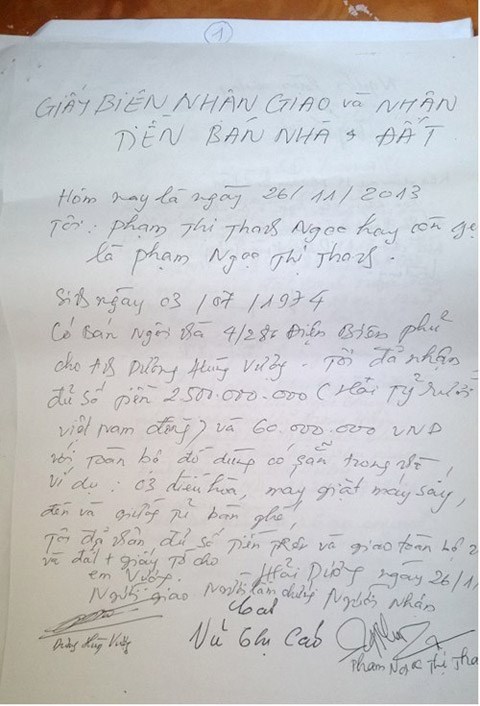 1
GIẤY BIÊN NHẬN GIAO và NHẬN
TIỀN BÁN NHÀ & ĐẤT
Hôm nay là ngày 26/11/2013
Tôi: Phạm Thị Thanh Ngọc hay còn gọi
là Phạm Ngọc Thị Thanh.
Sinh ngày 03/07/1974
Có bán ngôi nhà 4/286 Điện Biên Phủ
cho anh Dương Hùng Vương. Tôi đã nhận
đủ số tiền 2500.000.000 (Hai tỷ rưỡi
việt nam đồng) và 60.000.000 VND
với toàn bộ đồ dùng có sẵn trong nhà,
ví dụ: 03 điều hòa, máy giặt máy sấy,
đèn và giường tủ bàn ghế,
Tôi đã nhận đủ số tiền trên và giao toàn bộ
và đất + giấy tờ cho
em Vương. Hải Dương ngày 26/11
Người giao Người làm chứng Người Nhận
Vũ Thị Cab
Dương Hùng Vương
Phạm Ngọc Thị Tha